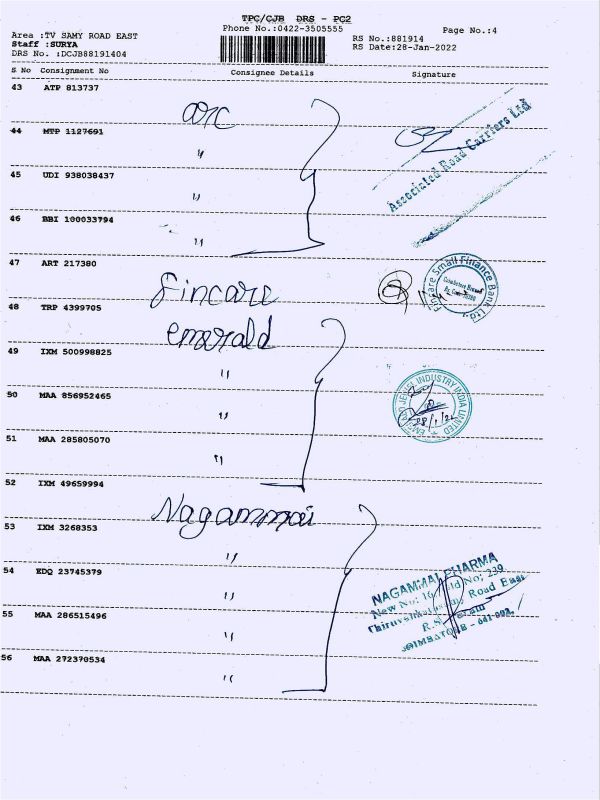 TPC/CJB DRS - PC2
Phone No.:0422-3505555
Page No.:4
Area :TV SAMY ROAD EAST
Staff :SURYA
DRS No. :DCJB88191404
RS No.:881914
RS Date:28-Jan-2022
S No Consignment No Consignee Details Signature
43 ATP 813737
arc
44 MTP 1127691
"
45 UDI 938038437
"
46 BBI 100033794
"
Associated Road Carriers Ltd
47 ART 217380
fincare
Fincare Small Finance Bank Ltd.
48 TRP 4399705
emerald
49 IXM 500998825
"
50 MAA 856952465
"
JEWEL INDUSTRY INDIA LIMITED
28/1/22
51 MAA 285805070
"
52 IXM 49659994
Nagammai
53 IXM 3268353
"
54 EDQ 23745379
"
55 MAA 286515496
"
56 MAA 272370534
"
NAGAMMAI PHARMA
New No; 16 Old No; 239
Road East
R.S.
COIMBATORE - 641 002.